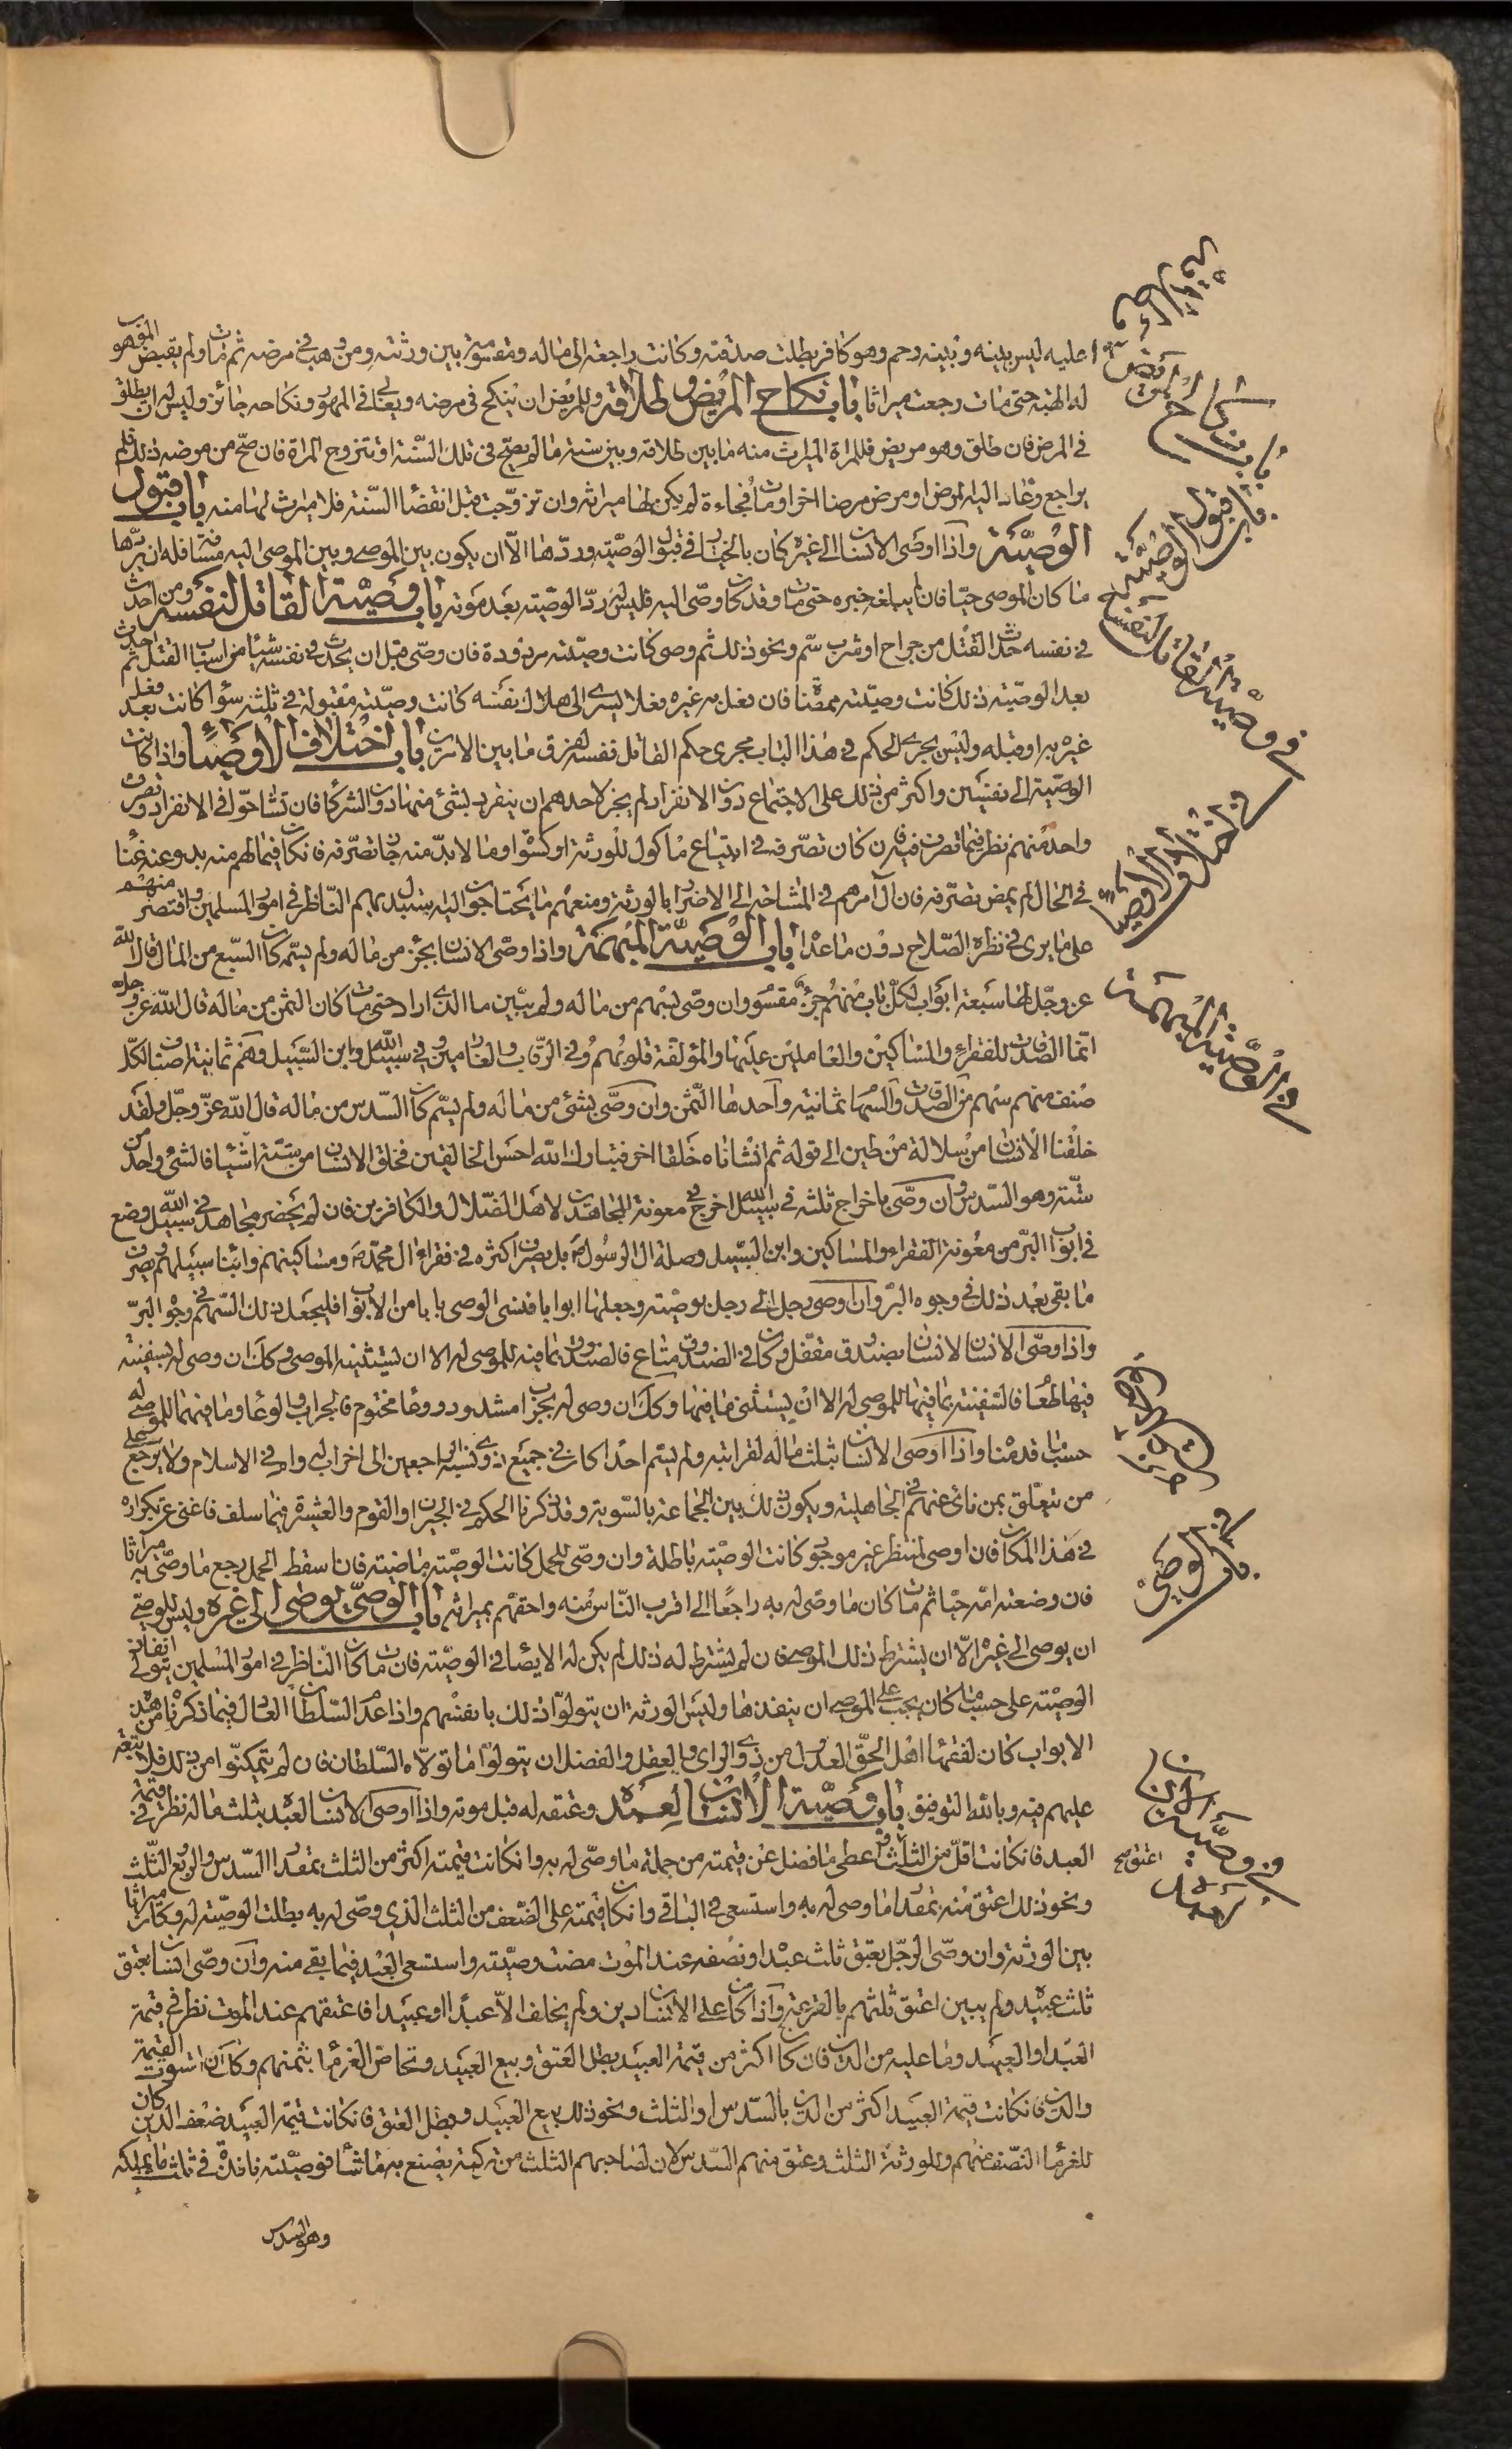 عليه ليس بينه وبينه رحم وهو كافر بطلت صدقته وكانت راجعة الى ماله ومقسومة بين ورثته ومن وهب في مرضه ثم مات ولم يقبض الموهوب
له الهبة حتى مات رجعت ميراثا باب نكاح المريض وطلاقه وللمريض ان ينكح في مرضه ونكاحه جائز وليس له ان يطلق
في المرض فان طلق وهو مريض فللمراة الميراث منه ما بين طلاقه وبين سنة ما لم يصح في تلك السنة او تتزوج المراة فان صح من مرضه ذلك ولم
يراجع وعاد اليه المرض او مرض مرضا اخر او مات فجاءة لم يكن لها ميراثه وان تزوجت قبل انقضاء السنة فلا ميراث لها منه باب قبول
الوصية واذا اوصى الانسان الى غيره كان بالخيار في قبول الوصية وردها الا ان يكون بين الموصي وبين الموصى اليه مسافة فله ان يردها
ما كان الموصي حيا فان لم يبلغه خبره حتى مات وقد كان وصى اليه فليس له رد الوصية بعد موته باب وصية القاتل لنفسه ومن احدث
في نفسه حدث القتل من جراح او شرب سم ونحو ذلك ثم وصى كانت وصيته مردودة فان وصى قبل ان يحدث في نفسه شيئا من اسباب القتل ثم احدث
بعد الوصية ذلك كانت وصيته ممضاة فان فعل به غيره فعلا يسري الى هلاك نفسه كانت وصيته مقبولة في ثلثه سواء كانت بعد فعل
غيره به او قبله وليس يجري الحكم في هذا الباب مجرى حكم القاتل نفسه لفرق ما بين الامرين باب اختلاف الاوصياء واذا كانت
الوصية الى نفسين واكثر من ذلك على الاجتماع دون الانفراد لم يجز لاحدهم ان ينفرد بشئ منها دون الشركاء فان تشاحوا في الانفراد وتصرف
واحد منهم نظر فيما تصرف فيه فان كان تصرفه في ابتياع ماكول للورثة او كسوة او ما لا بد منه جاز تصرفه فان كان فيما لهم منه بد وعنه غنا
في الحال لم يمض تصرفه فان آل امرهم في المشاحة الى الاضرار بالورثة ومنعهم ما يحتاجون اليه استبدل بهم الناظر في امور المسلمين واقتصر منهم
على ما يرى في نظره الصلاح دون ما عدا باب الوصية المبهمة واذا وصى الانسان بجزء من ماله ولم يسمه كان السبع من المال قال الله
عز وجل لها سبعة ابواب لكل باب منهم جزء مقسوم وان وصى بسهم من ماله ولم يبين ما الذي اراد حتى مات كان الثمن من ماله قال الله عز وجل
انما الصدقات للفقراء والمساكين والعاملين عليها والمؤلفة قلوبهم وفي الرقاب والغارمين وفي سبيل الله وابن السبيل وهم ثمانية اصناف لكل
صنف منهم سهم من الصدقات والسهام ثمانية واحدها الثمن وان وصى بشئ من ماله ولم يسم كان السدس من ماله قال الله عز وجل ولقد
خلقنا الانسان من سلالة من طين الى قوله ثم انشاناه خلقا اخر فتبارك الله احسن الخالقين فخلق الانسان من ستة اشياء فالشئ واحد من
ستة وهو السدس وان وصى باخراج ثلثه في سبيل الله اخرج في معونة المجاهدين لاهل الضلال والكافرين فان لم يحضر مجاهد في سبيل الله وضع
في ابواب البر من معونة الفقراء والمساكين وابن السبيل وصلة ال الرسول ص بل يصرف اكثره في فقراء ال محمد ص ومساكينهم وابناء سبيلهم ويصرف
ما بقي بعد ذلك في وجوه البر وان اوصى رجل الى رجل بوصية وجعلها ابوابا فنسي الوصي بابا من الابواب فليجعل ذلك السهم في وجوه البر
واذا وصى الانسان لانسان بصندوق مقفل وكان في الصندوق متاع فالصندوق بما فيه للموصى له الا ان يستثنيه الموصي وكك ان وصى له بسفينة
فيها طعام فالسفينة بما فيها للموصى له الا ان يستثني ما فيها وكك ان وصى له بجراب مشدود ووعاء مختوم فالجراب والوعاء وما فيهما للموصى له
حسب ما قدمنا واذا اوصى الانسان بثلث ماله لقرابته ولم يسم احدا كان في جميع ذوي نسبه الراجعين الى اخر اب له وام في الاسلام ولا يرجع على
من تعلق بمن نأى عنهم في الجاهلية ويكون ذلك بين الجماعة بالسوية وقد ذكرنا الحكم في الجيران والقوم والعشيرة فيما سلف فاغنى عن تكراره
في هذا المكان فان اوصى لمنتظر غير موجود كانت الوصية باطلة وان وصى للحمل كانت الوصية ماضية فان سقط الحمل رجع ما وصى به ميراثا
فان وضعته امه حيا ثم مات كان ما وصى له به راجعا الى اقرب الناس منه واحقهم بميراثه باب الوصي يوصي الى غيره وليس للوصي
ان يوصي الى غيره الا ان يشترط ذلك الموصي فان لم يشترط له ذلك لم يكن له الايصاء في الوصية فان مات كان الناظر في امور المسلمين يتولى انفاذ
الوصية على حسب ما كان يجب على الموصي ان ينفذها وليس للورثة ان يتولوا ذلك بانفسهم واذا عدم السلطان العادل فيما ذكرناه من هذه
الابواب كان لفقهاء اهل الحق العدول من ذوي الراي والعقل والفضل ان يتولوا ما تولاه السلطان فان لم يتمكنوا من ذلك فلا تبعة
عليهم فيه وبالله التوفيق باب وصية الانسان لعبده وعتقه له قبل موته واذا اوصى الانسان لعبده بثلث ماله نظر في قيمة
العبد فان كانت اقل من الثلث اعطي ما فضل عن قيمته من جملة ما وصى له به وان كانت قيمته اكثر من الثلث بمقدار السدس والربع الثلث
ونحو ذلك اعتق منه بمقدار ما وصى له به واستسعى في الباقي وان كان قيمته على الضعف من الثلث الذي وصى له به بطلت الوصية له وكان ميراثا
بين الورثة وان وصى الرجل بعتق ثلث عبده او نصفه عند الموت مضت وصيته واستسعى العبد فيما بقي منه وان وصى انسان بعتق
ثلث عبيده ولم يبين اعتق ثلثهم بالقرعة واذا كان على الانسان دين ولم يخلف الا عبدا او عبيدا فاعتقهم عند الموت نظر في قيمة
العبد او العبيد وما عليه من الدين فان كان اكثر من قيمة العبيد بطل العتق وبيع العبيد وتحاص الغرماء بثمنهم وكك ان استوت القيمة
والدين فان كانت قيمة العبيد اكثر من الدين بالسدس او الثلث ونحو ذلك بيع العبيد وبطل العتق فان كانت قيمة العبيد ضعف الدين كان
للغرماء النصف منهم وللورثة الثلث وعتق منهم السدس لان لصاحبهم الثلث من تركته يصنع به ما شاء فوصيته نافذة في ثلث ما يملكه
وهو السدس
باب نكاح المريض
باب قبول الوصية
في وصية القاتل لنفسه
في اختلاف الاوصياء
في الوصية المبهمة
باب الوصي
في وصية الانسان لعبده
اعتق صح